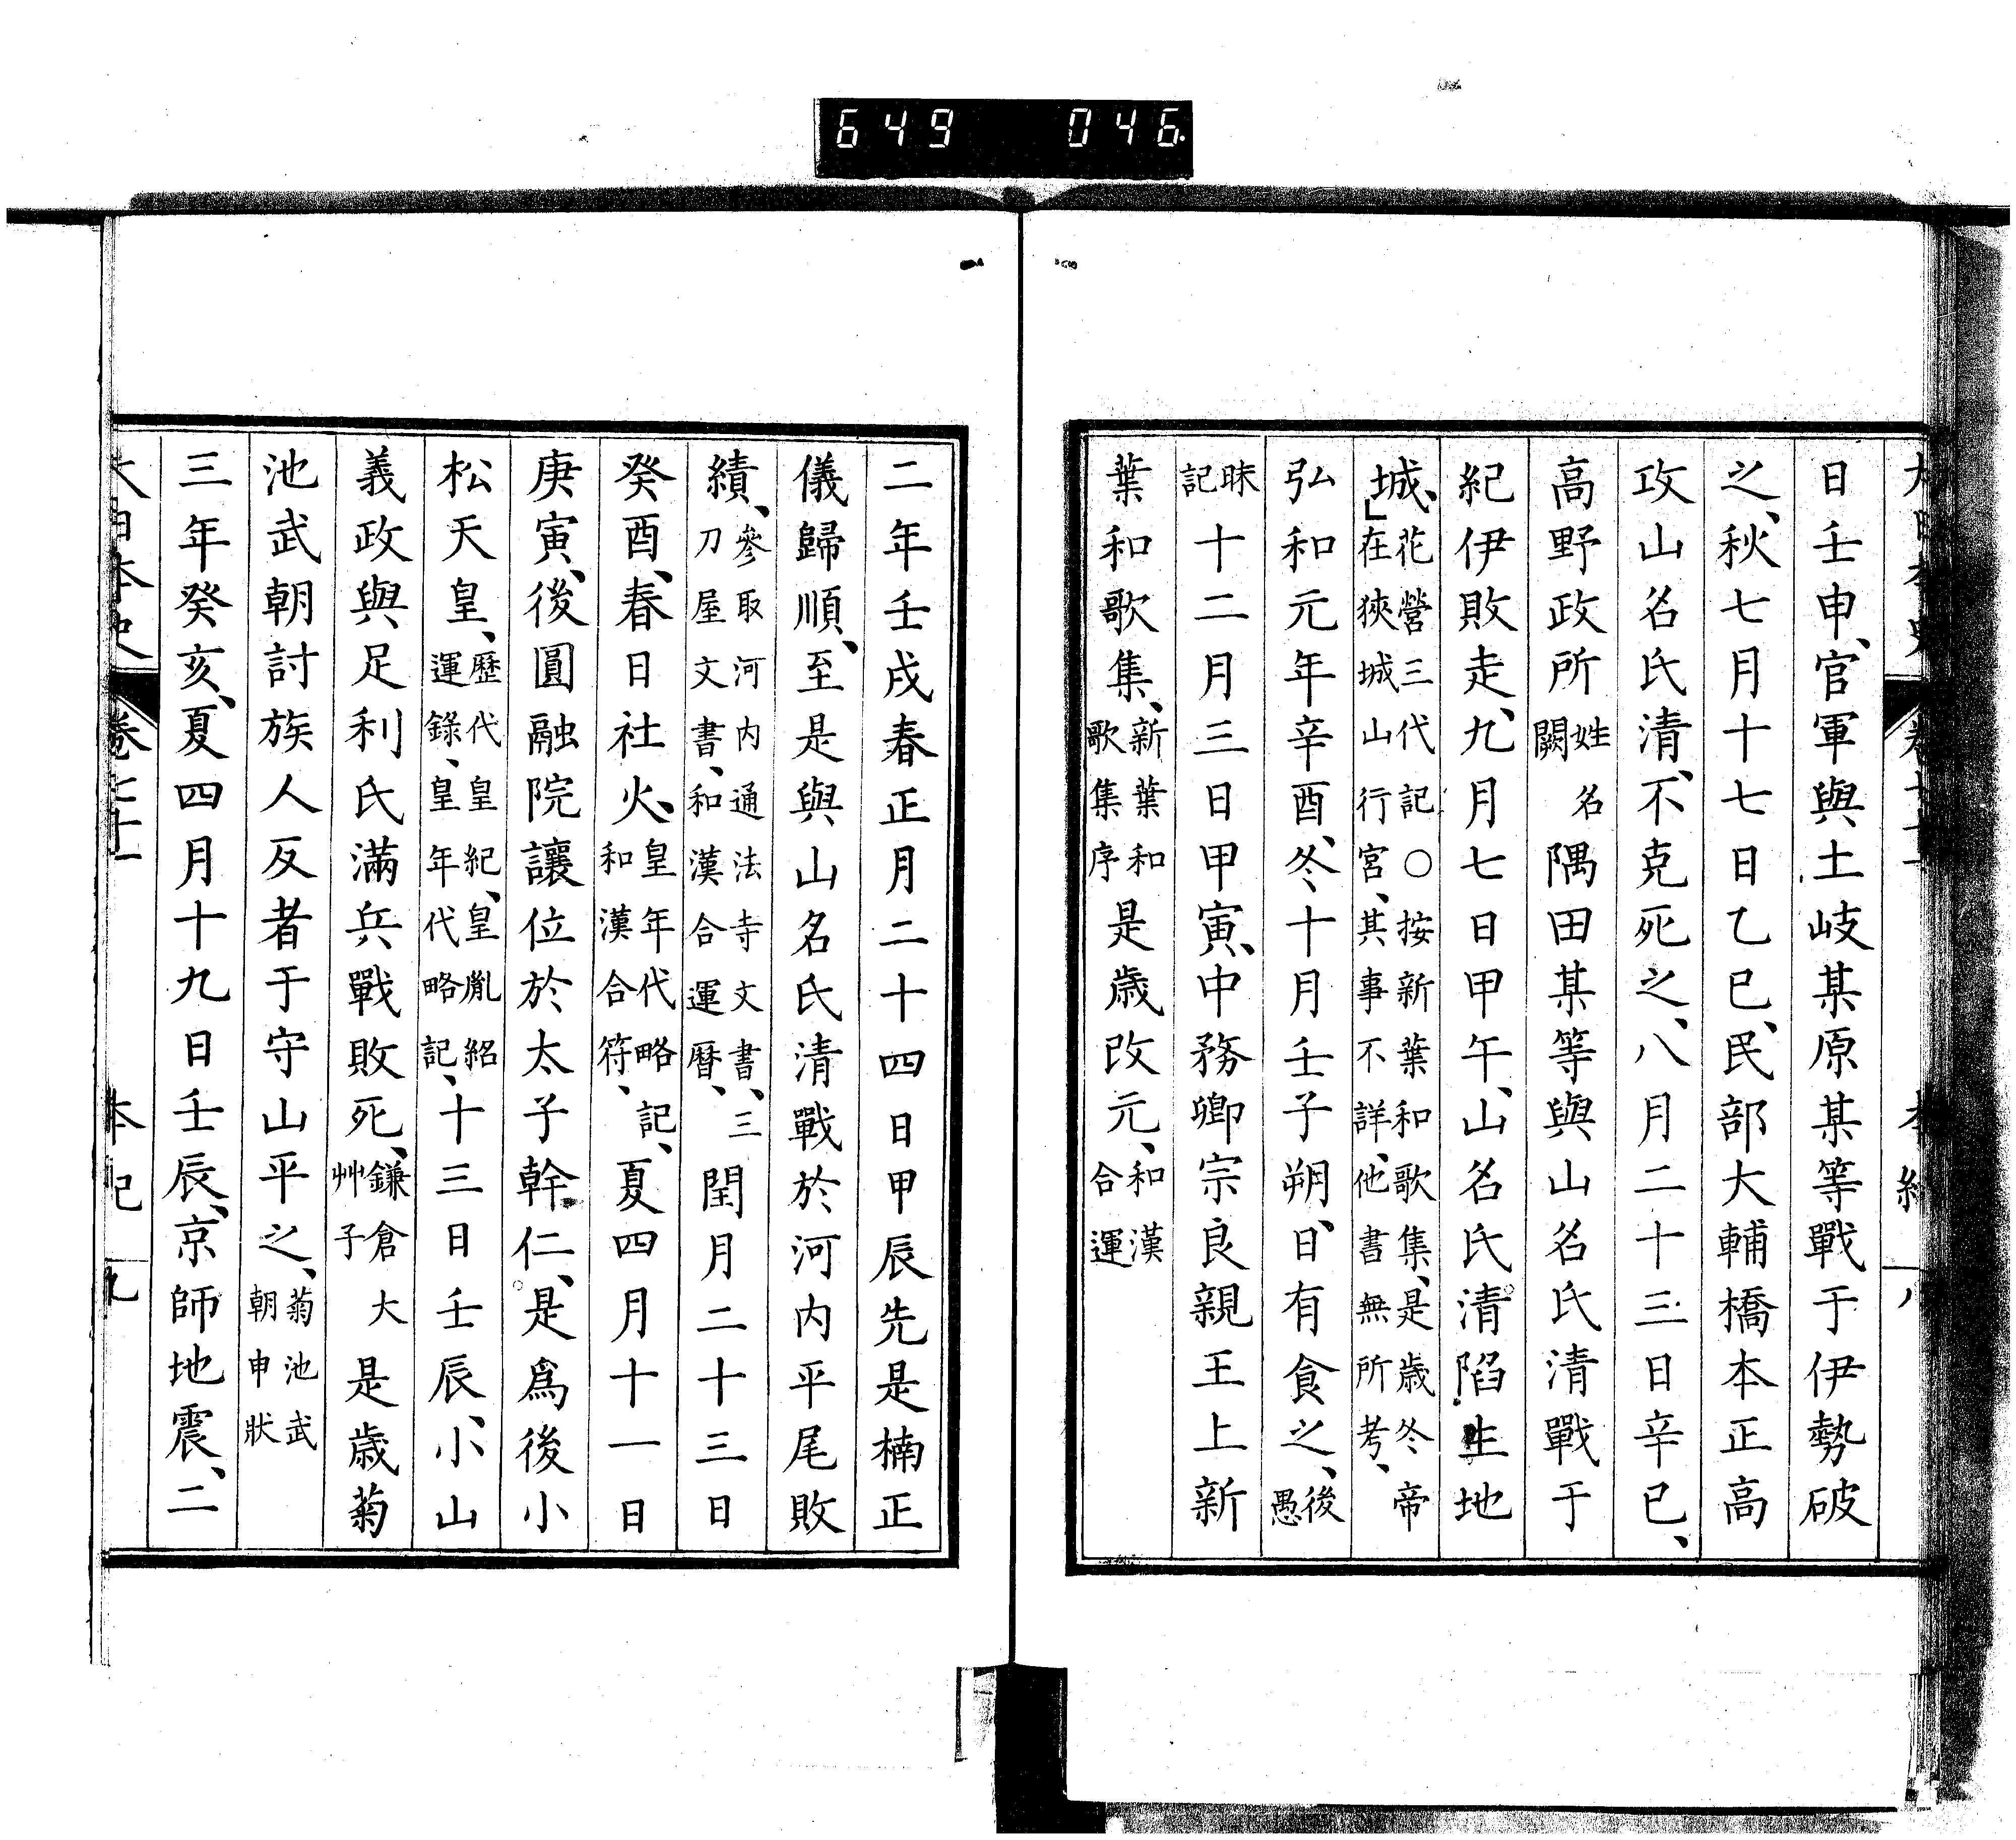 649 046
日壬申、官軍與土岐某原某等戰于伊勢破
之、秋七月十七日乙巳、民部大輔橋本正高
攻山名氏清、不克死之、八月二十三日辛巳、
高野政所姓名闕隅田某等與山名氏清戰于
紀伊敗走、九月七日甲午、山名氏清陷生地
城、花營三代記○按新葉和歌集、是歲冬帝在狹城山行宮、其事不詳、他書無所考、
弘和元年辛酉、冬、十月壬子朔、日有食之、後愚
昧記十二月三日甲寅、中務卿宗良親王上新
葉和歌集、新葉和歌集序是歲改元、和漢合運
二年壬戌春正月二十四日甲辰先是楠正
儀歸順、至是與山名氏清戰於河内平尾敗
績、參取河内通法寺文書、三刀屋文書、和漢合運曆、閏月二十三日
癸酉、春日社火、皇年代略記、和漢合符、夏四月十一日
庚寅、後圓融院讓位於太子幹仁、是爲後小
松天皇、歷代皇紀、皇胤紹運錄、皇年代略記、十三日壬辰、小山
義政與足利氏滿兵戰敗死、鎌倉大艸子是歲菊
池武朝討族人反者于守山平之、菊池武朝申狀
三年癸亥、夏四月十九日壬辰、京師地震、二
大日本史 卷七十一 本紀 九